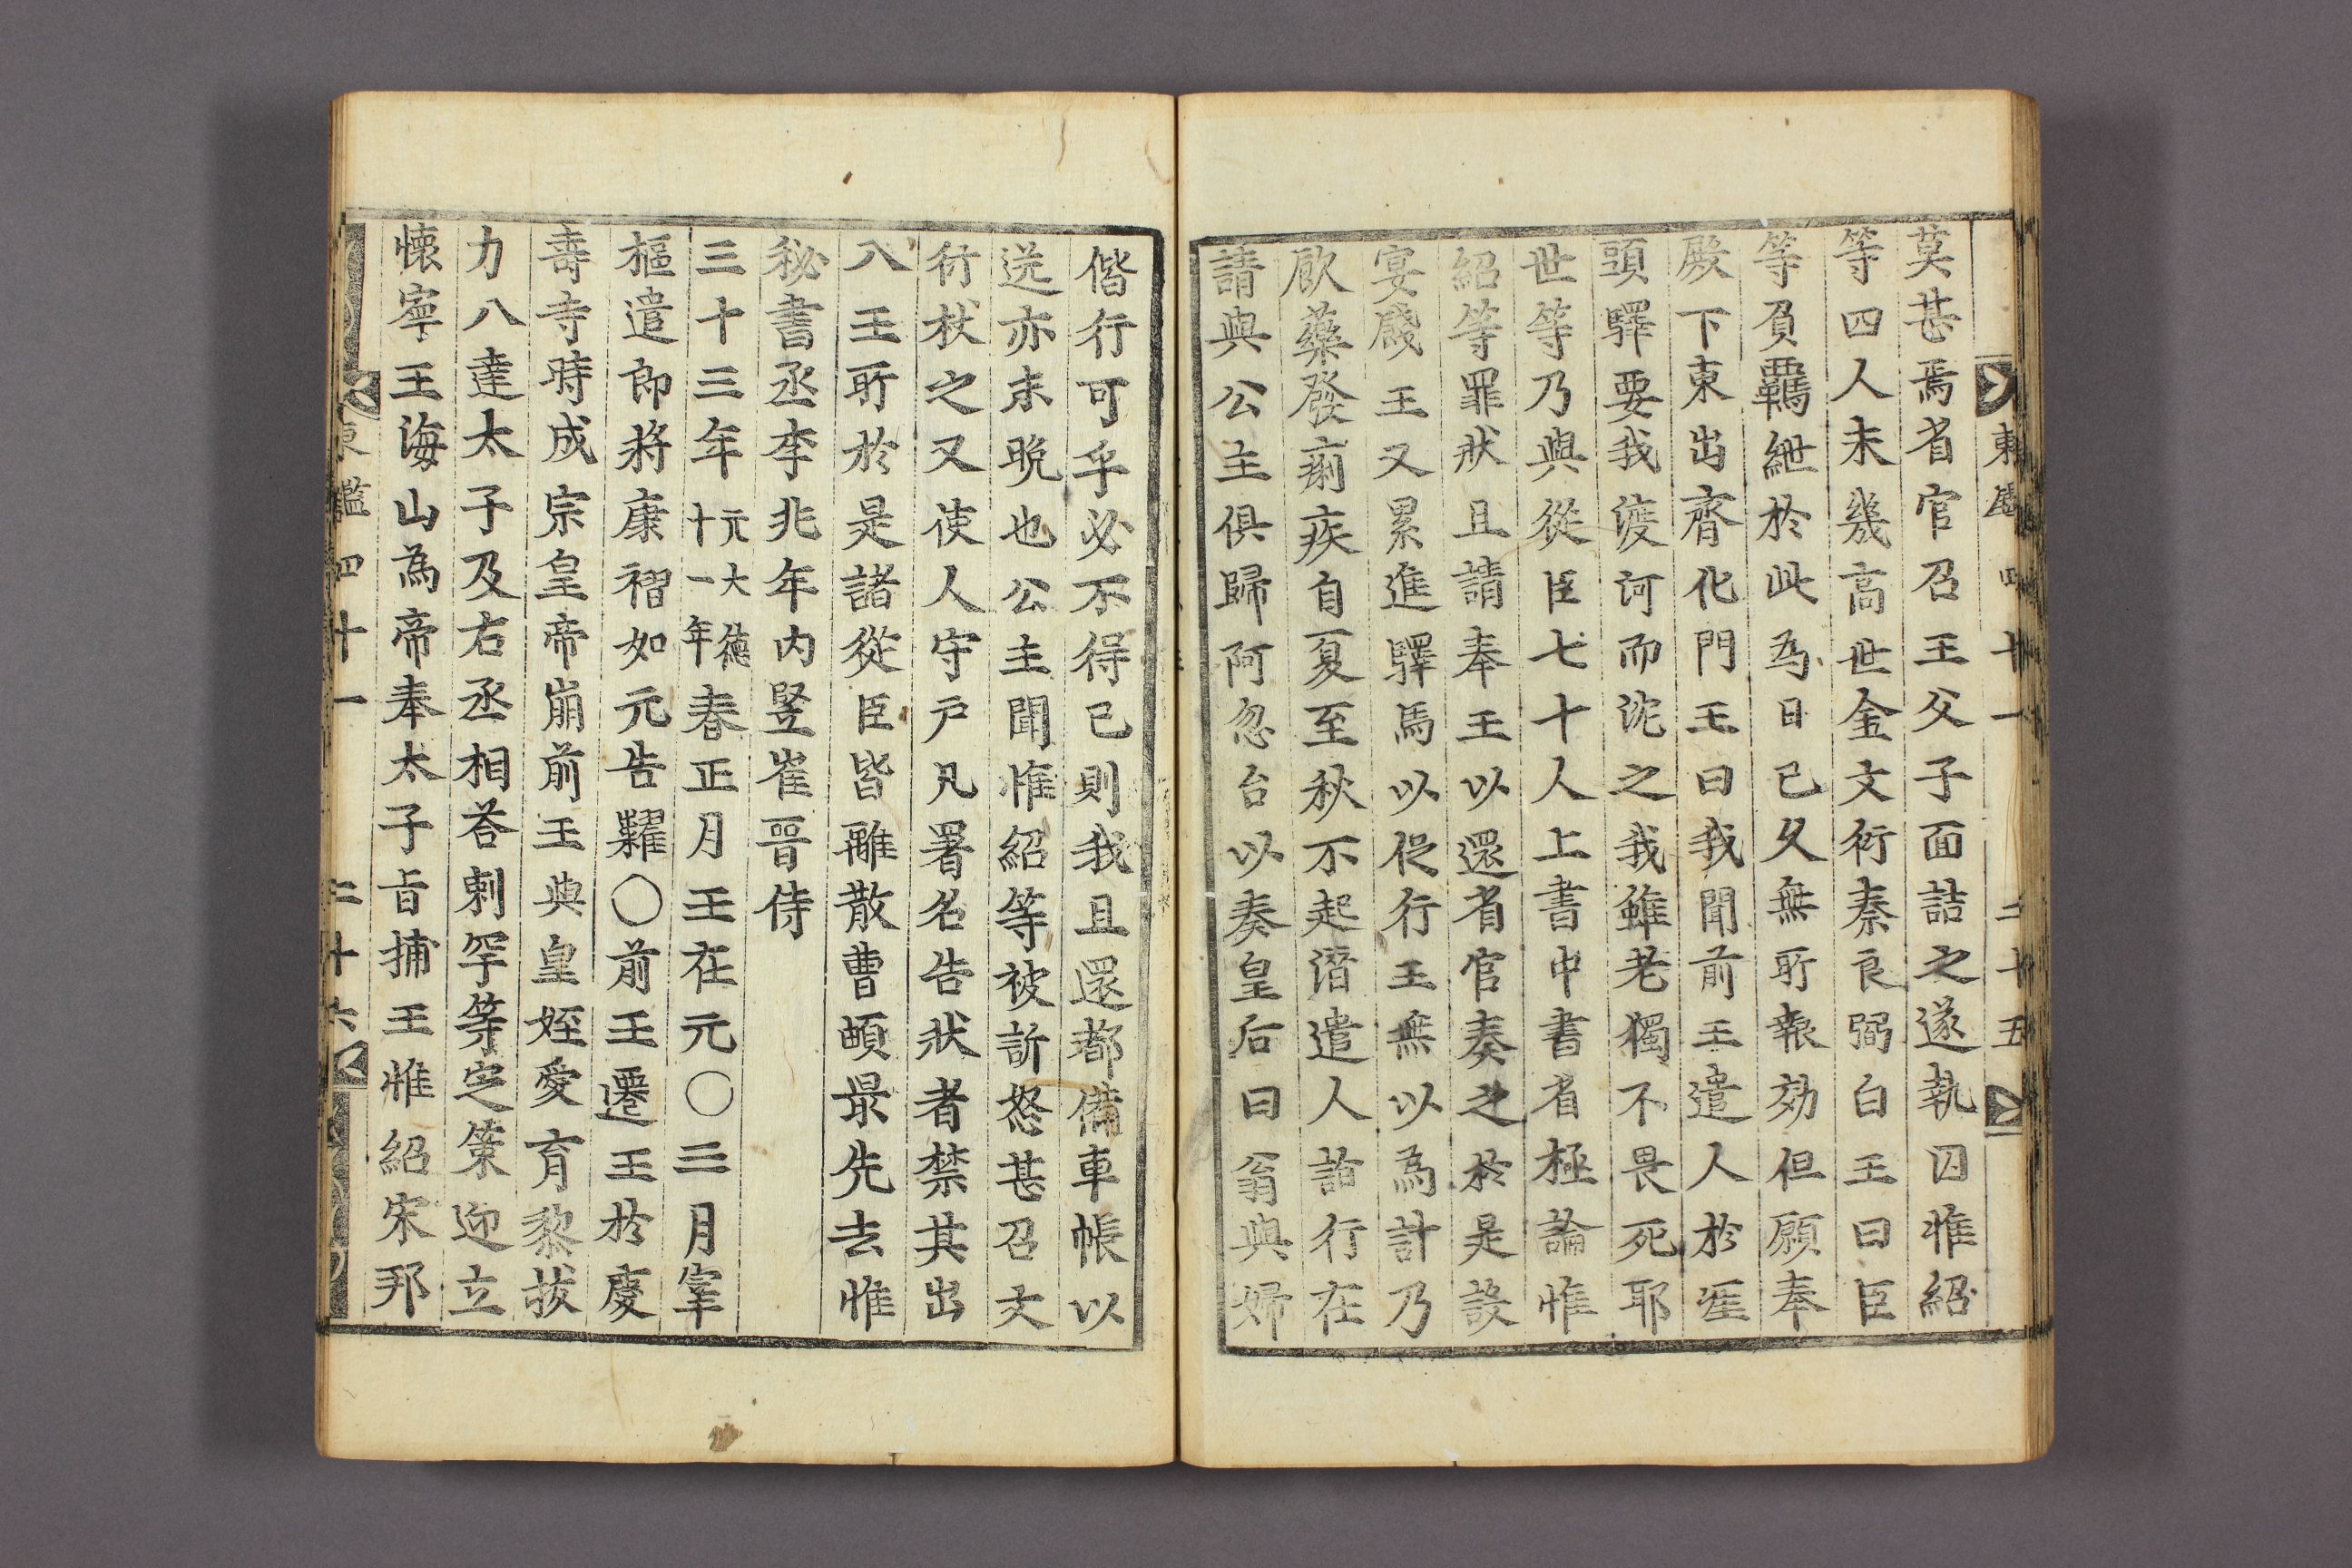 東鑑四十一 二十五
莫甚焉省官召王父子面詰之遂執囚惟紹
等四人未幾高世金文衍秦良弼白王曰臣
等負羈紲於此為日已久無所報効但願奉
殿下東出齊化門王曰我聞前王遣人於涯
頭驛要我渡河而沈之我雖老獨不畏死耶
世等乃與從臣七十人上書中書省極論惟
紹等罪狀且請奉王以還省官奏之於是設
宴餞王又累進驛馬以促行王無以為計乃
飲藥發痢疾自夏至秋不起潛遣人詣行在
請與公主俱歸阿忽台以奏皇后曰翁與婦
偕行可乎必不得已則我且還都備車帳以
送亦未晩也公主聞惟紹等被訴怒甚召文
衍杖之又使人守戶凡署名告狀者禁其出
入王所於是諸從臣皆離散曹頔最先去惟
秘書丞李兆年內竪崔晉侍
三十三年元大德十一年春正月王在元〇三月宰
樞遣郎將康褶如元告糶〇前王遷王於慶
壽寺時成宗皇帝崩前王與皇姪愛育黎拔
力八達太子及右丞相荅剌罕等定策迎立
懷寧王海山為帝奉太子旨捕王惟紹宋邦
東鑑四十一 二十六